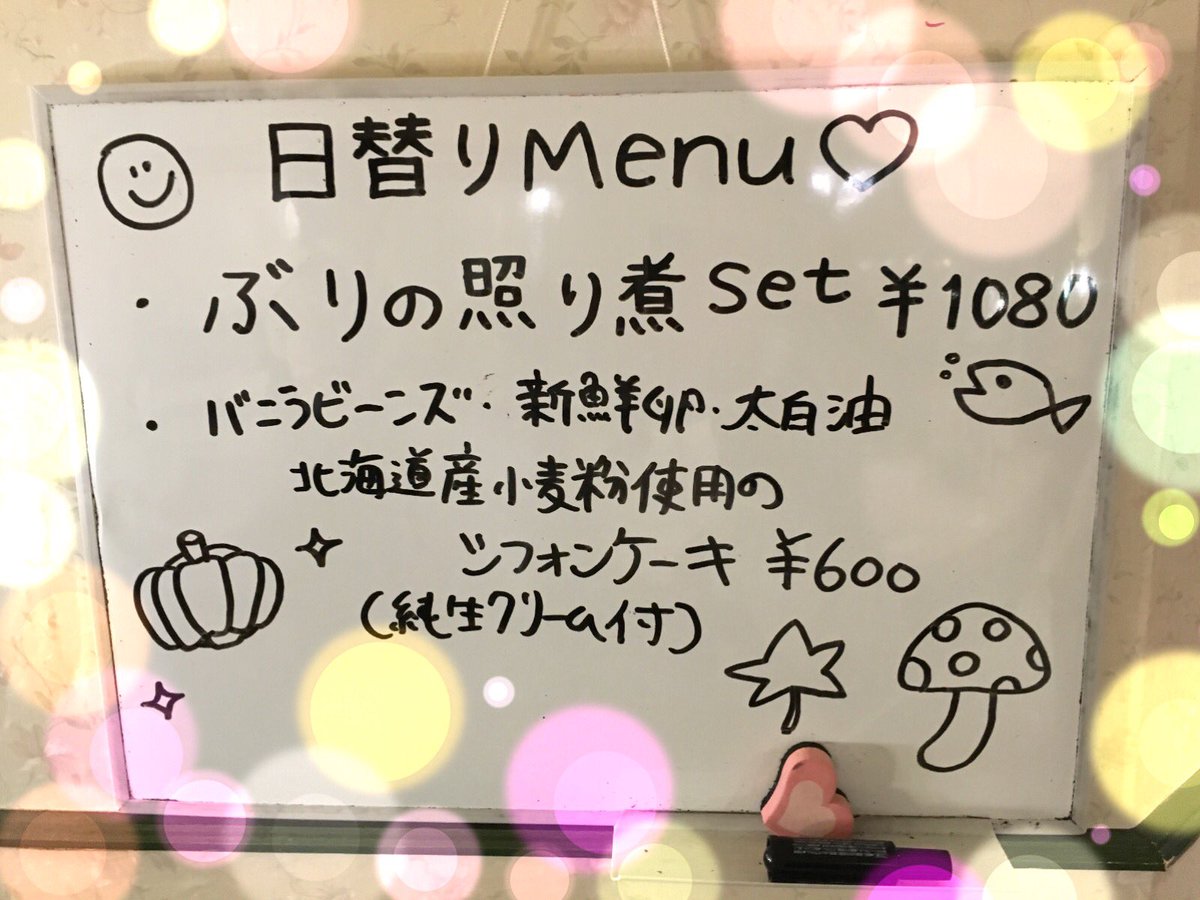 日替りMenu♡
・ぶりの照り煮set ¥1080
・バニラビーンズ・新鮮卵・太白油
北海道産小麦粉使用の
シフォンケーキ ¥600
(純生クリーム付)